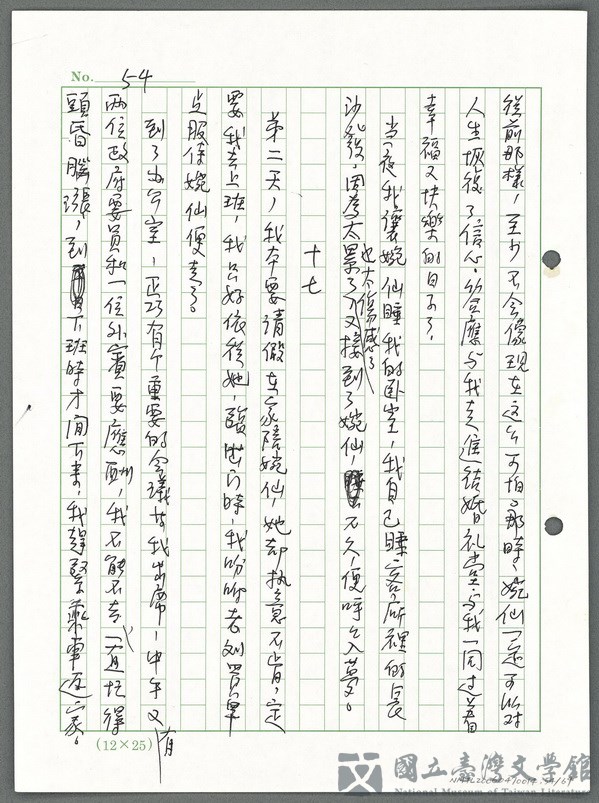 No. 54
從前那樣，至少不會像現在這么可怕。那時，婉仙一定可以对
人生恢復了信心，答應与我走進結婚礼堂，与我一同过着
幸福又快樂的日子了。
当夜我讓婉仙睡我的卧室，我自己睡客厅裡的長
沙發，因為太累了，也太傷感了，又接到了婉仙，不久，便呼呼入夢。
十七
第二天，我本要請假在家陪婉仙，她却执意不肯，定
要我去上班，我只好依從她，臨出门時，我吩咐老刘買早
点服侍婉仙便走了。
到了办公室，正巧有个重要的会議等我出席，中午又有
两位政府要員和一位外賓要應酬，我不能不去，一直忙得
頭昏腦漲，到下班時才闲下来，我趕緊乘車返家。
(12×25)
國立臺灣文學館
National Museum of Taiwan Literature